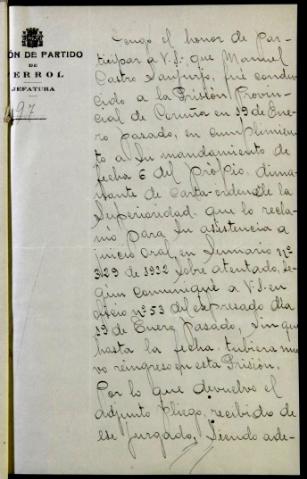 ÓN DE PARTIDO
DE
ERROL
JEFATURA
497
Tengo el honor de par-
ticipar a V.S. que Manuel
Castro Sanjurjo, fué condu-
cido a la Prisión Provin-
cial de Coruña en 19 de Ene-
ro pasado, en cumplimien-
to a su mandamiento de
fecha 6 del propio, dima-
nante de carta-orden de la
Superioridad que lo recla-
mó para su asistencia a
juicio oral, en Sumario nº
329 de 1932 sobre atentado, se-
gún comuniqué a V.S. en
oficio nº 53 del expresado día
19 de Enero pasado, sin que
hasta la fecha tubiera nue-
vo reingreso en esta Prisión.
Por lo que devuelvo el
adjunto pliego, recibido de
ese juzgado, siendo ade-